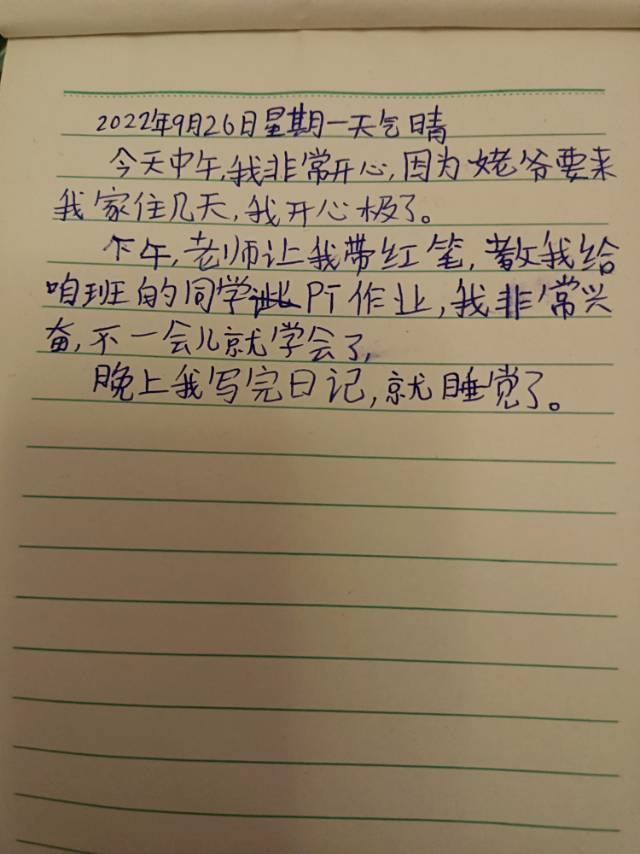 2022年9月26日星期一天气晴
今天中午,我非常开心,因为姥爷要来
我家住几天,我开心极了。
下午,老师让我带红笔,教我给
咱班的同学PT作业,我非常兴
奋,不一会儿就学会了,
晚上我写完日记,就睡觉了。